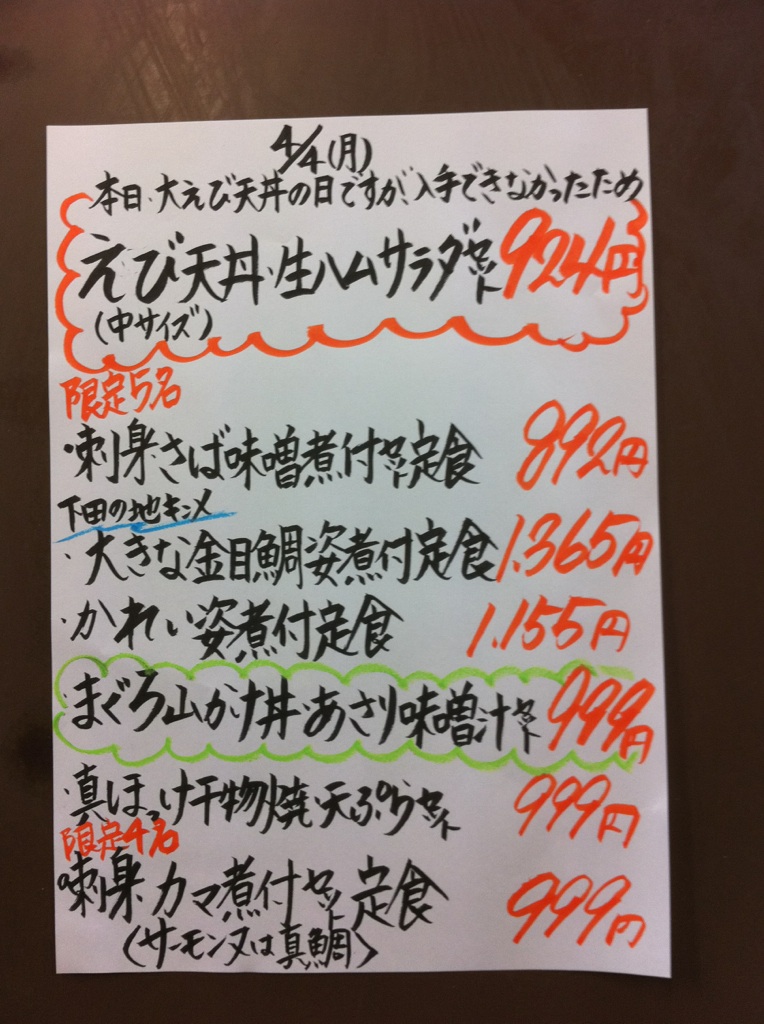 4/4(月)
本日・大えび天丼の日ですが、入手できなかったため
えび天丼・生ハムサラダセット 924円
(中サイズ)
限定5名
・刺身さば味噌煮付セット定食 892円
下田の地キンメ
・大きな金目鯛姿煮付定食 1.365円
・かれい姿煮付定食 1.155円
・まぐろ山かけ丼・あさり味噌汁セット 999円
・真ほっけ干物焼・天ぷらセット 999円
限定4名
・刺身・カマ煮付セット定食 999円
(サーモン又は真鯛)